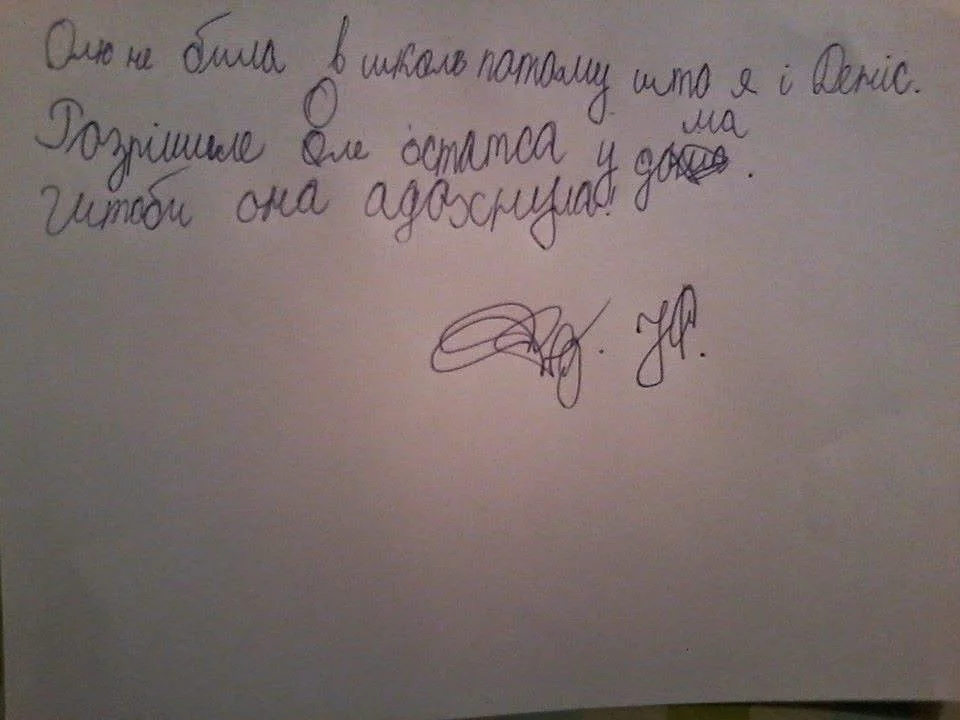 Олю не била в школь патаму што я і Деніс.
Розрішиле Оле остатса у дома.
Штоби она адохнула!